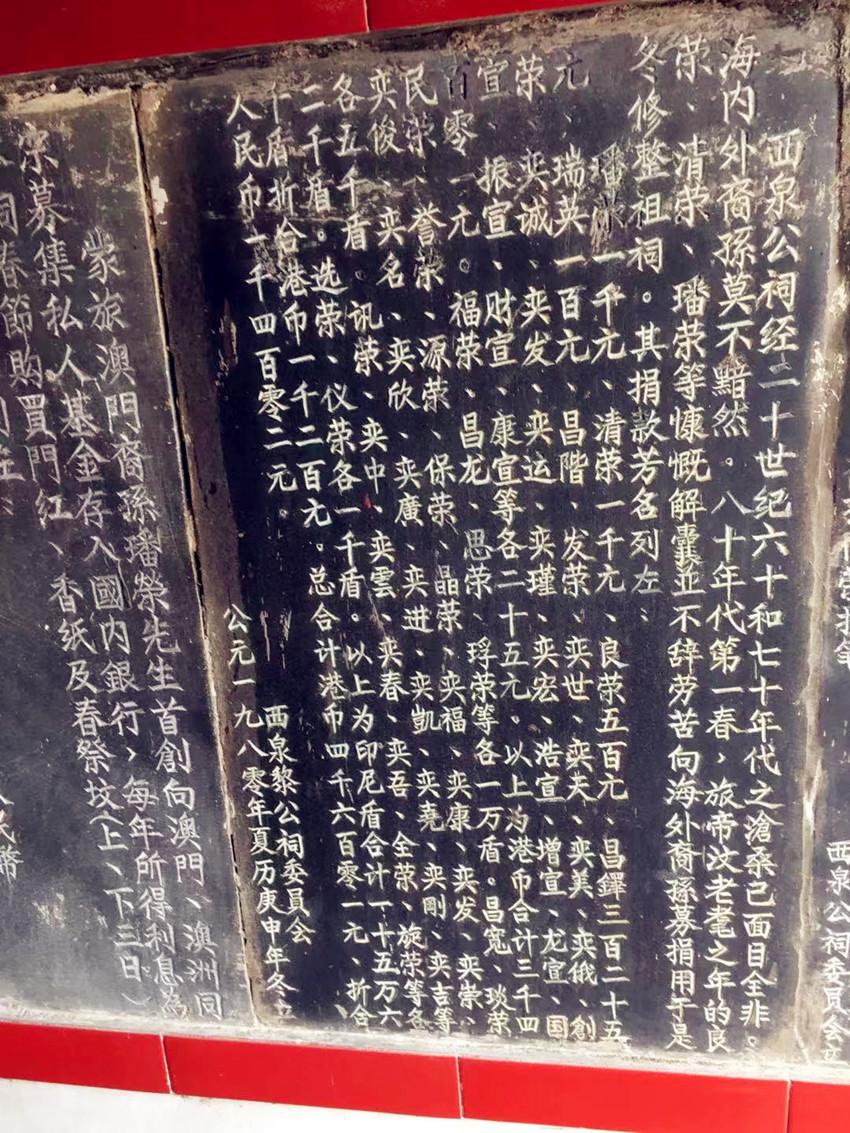 西泉公祠委員会立
西泉公祠经二十世纪六十和七十年代之滄桑已面目全非。
海内外裔孫莫不黯然。八十年代第一春，旅帝汶老耄之年的良
荣、清荣、璠荣等慷慨解囊並不辞劳苦向海外裔孫募捐用于是
冬修整祖祠。其捐款芳名列左：
璠荣一千元、清荣一千元、良荣五百元、昌鐸三百二十五
元、瑞英一百元、昌階、发荣、奕世、奕天、奕美、奕俄、創
荣、奕诚、奕发、奕运、奕瑾、奕宏、浩宣、增宣、龙宣、国
宣、振宣、财宣、康宣等各二十五元。以上为港币合计三千四
百零一元。福荣、昌龙、思荣、琈荣等各一万盾。昌宽、琰荣
民荣、誉荣、源荣、保荣、晶荣、奕福、奕康、奕发、奕崇、
奕俊、奕名、奕欣、奕廣、奕进、奕凱、奕堯、奕剛、奕吉等
各五千盾。讯荣、奕中、奕雲、奕春、奕吾、全荣、旋荣等各
二千盾。选荣、仪荣各一千盾。以上为印尼盾合计一十五万六
千盾折合港币一千二百元。总合计港币四千六百零一元、折合
人民币一千四百零二元。
西泉黎公祠委員会
公元一九八零年夏历庚申年冬立
蒙旅澳門裔孫璠榮先生首創向澳門、澳洲同
宗募集私人基金存入國内銀行，每年所得利息為
祠春節購買門红、香紙及春祭坟（上、下三日）